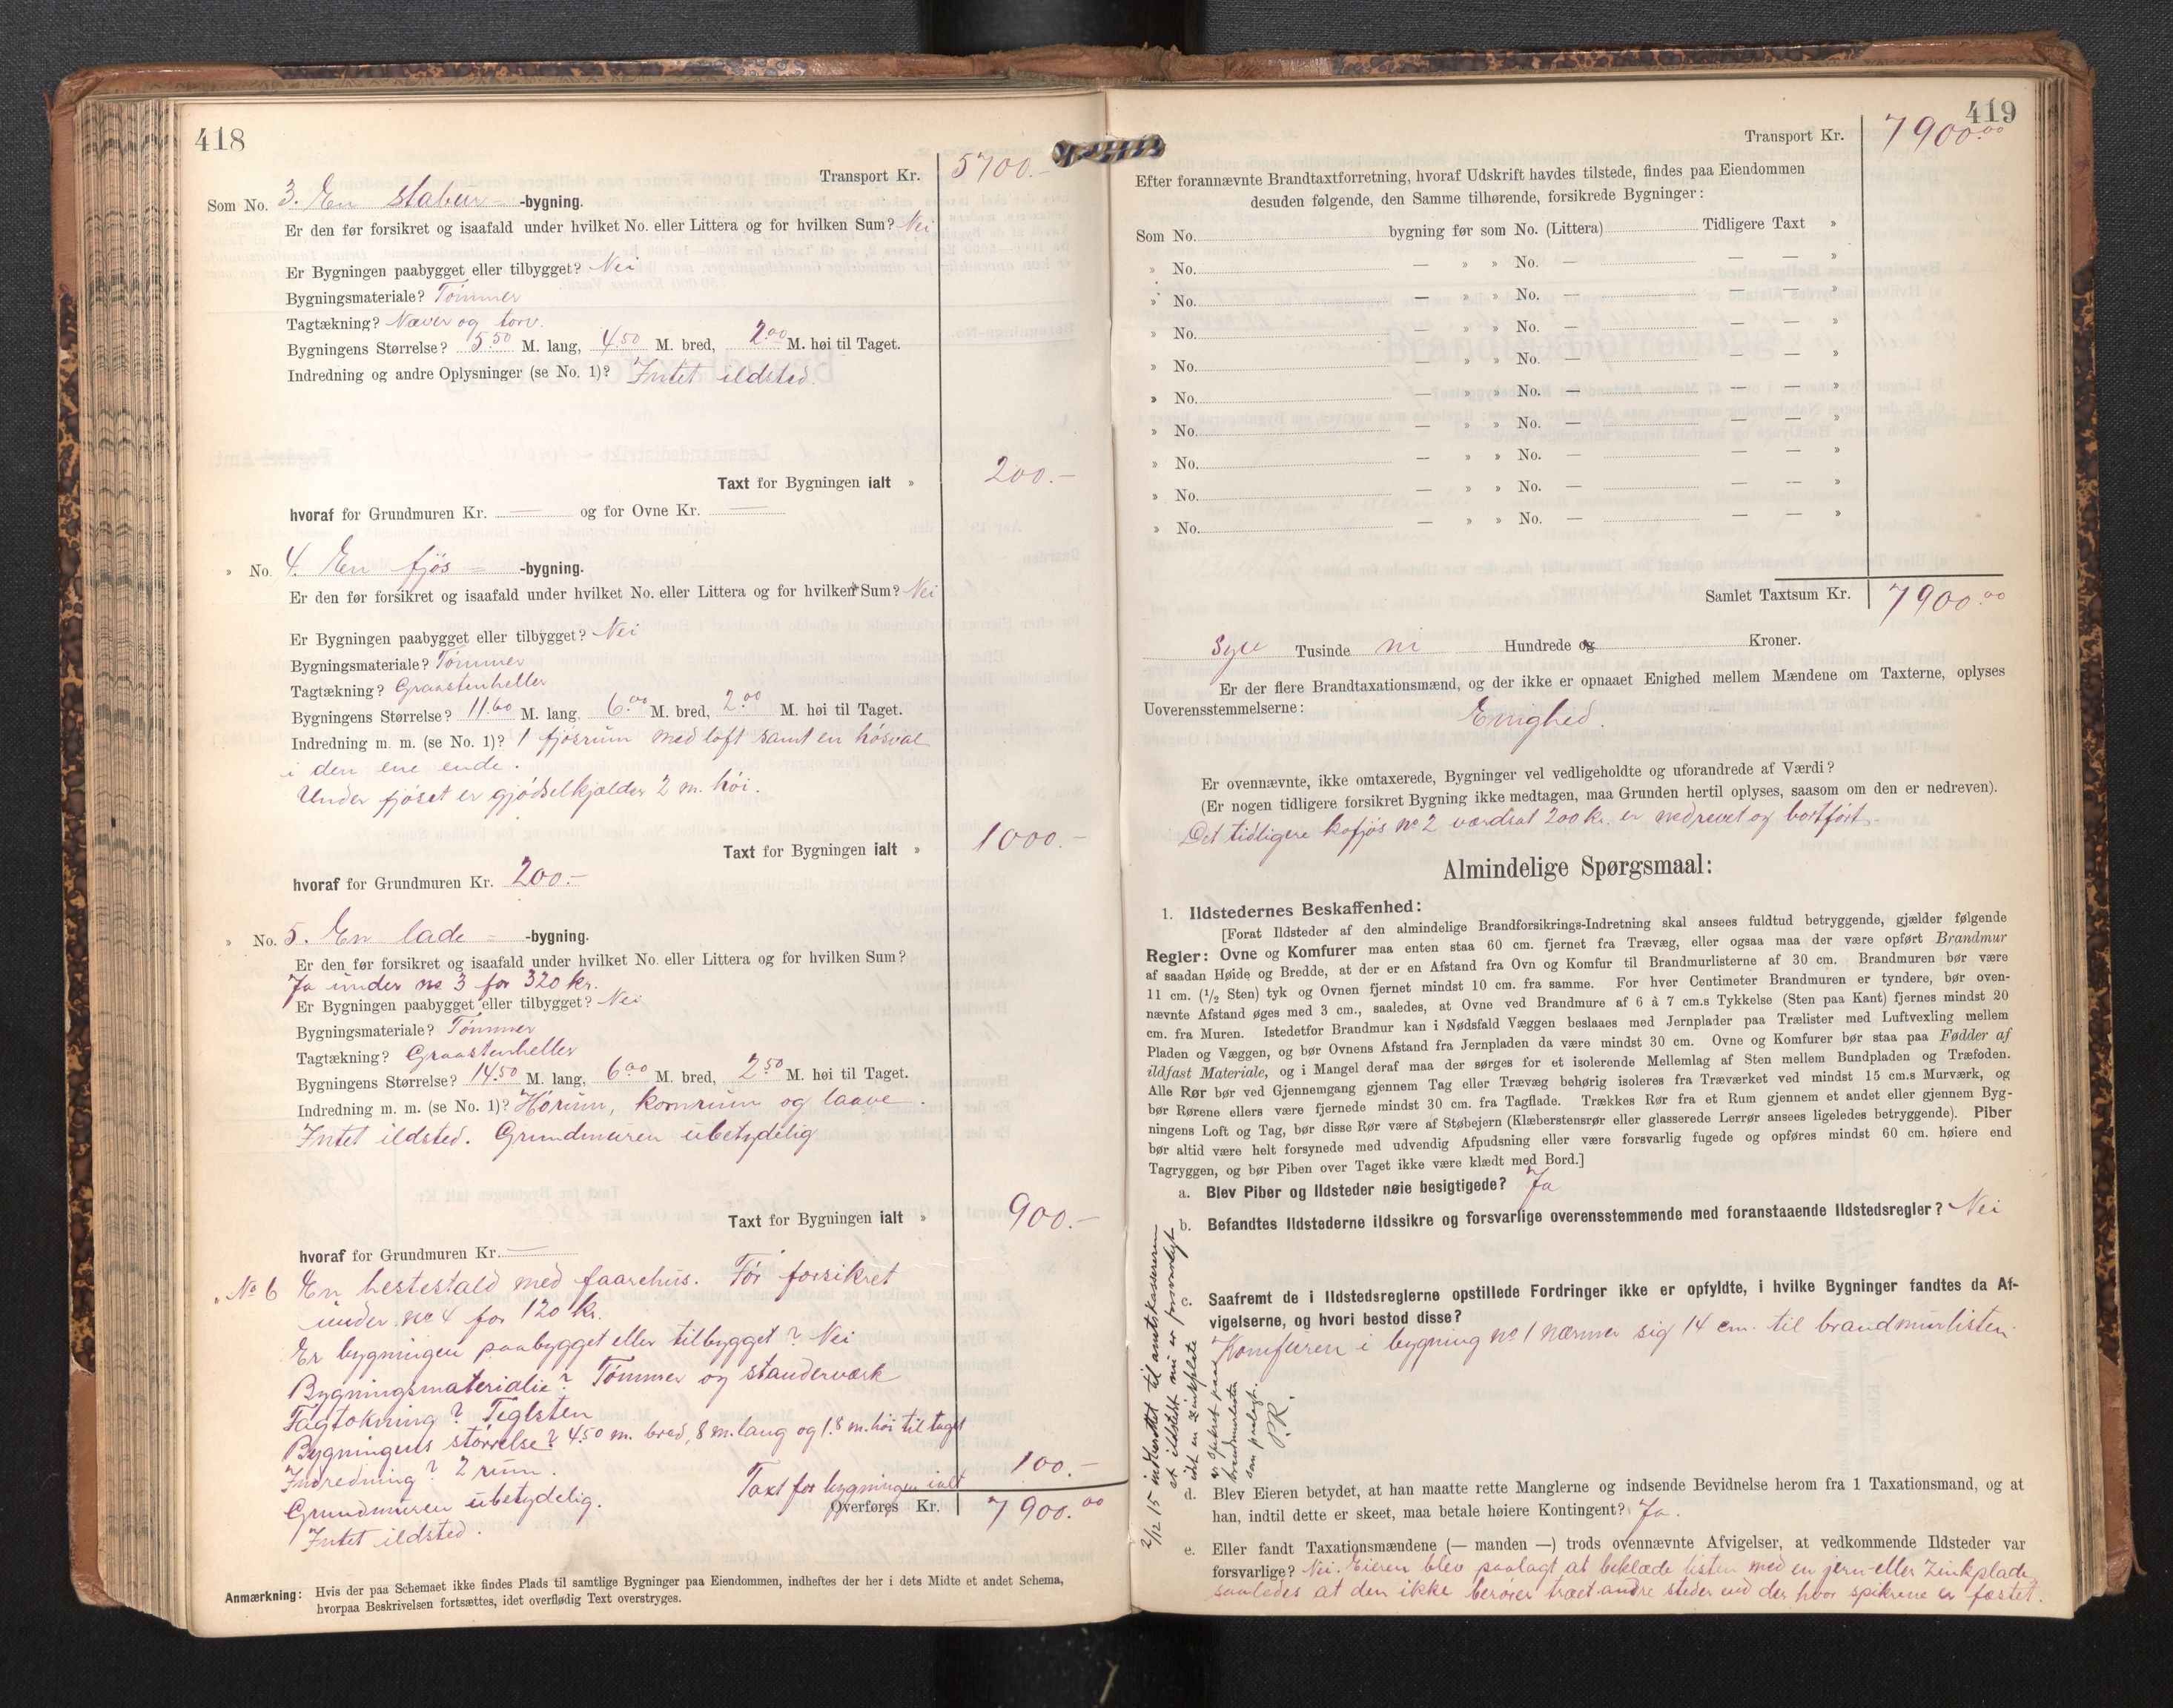 418
Transport Kr. 5700.-
Som No. 3. En stabur -bygning.
Er den før forsikret og isaafald under hvilket No. eller Littera og for hvilken Sum? Nei
Er Bygningen paabygget eller tilbygget? Nei
Bygningsmateriale? Tømmer
Tagtækning? Næver og torv.
Bygningens Størrelse? 5.50 M. lang, 4.50 M. bred, 2.00 M. høi til Taget.
Indredning og andre Oplysninger (se No. 1)? Intet ildsted.
Taxt for Bygningen ialt » 200.-
hvoraf for Grundmuren Kr. — og for Ovne Kr. —
» No. 4. En fjøs -bygning.
Er den før forsikret og isaafald under hvilket No. eller Littera og for hvilken Sum? Nei
Er Bygningen paabygget eller tilbygget? Nei
Bygningsmateriale? Tømmer
Tagtækning? Graastenheller
Bygningens Størrelse? 11.60 M. lang, 6.00 M. bred, 2.00 M. høi til Taget.
Indredning m. m. (se No. 1)? 1 fjøsrum med loft samt en høsval
i den ene ende.
Under fjøset er gjødselkjælder 2 m. høi.
Taxt for Bygningen ialt » 1000.-
hvoraf for Grundmuren Kr. 200.-
» No. 5. En lade -bygning.
Er den før forsikret og isaafald under hvilket No. eller Littera og for hvilken Sum?
Ja under no 3 for 320 kr.
Er Bygningen paabygget eller tilbygget? Nei
Bygningsmateriale? Tømmer
Tagtækning? Graastenheller
Bygningens Størrelse? 14.50 M. lang, 6.00 M. bred, 2.50 M. høi til Taget.
Indredning m. m. (se No. 1)? Hørum, kornrum og laave.
Intet ildsted. Grundmuren ubetydelig
Taxt for Bygningen ialt » 900.-
hvoraf for Grundmuren Kr. —
» No 6 En hestestald med faarehus. Før forsikret
under no 4 for 120 kr.
Er bygningen paabygget eller tilbygget? Nei
Bygningsmaterialie? Tømmer og standerværk
Tagtækning? Teglsten
Bygningens størrelse? 4.50 m. bred, 8 m. lang og 1.8 m. høi til taget
Indredning? 2 rum.
Taxt for bygningen ialt 100.-
Grundmuren ubetydelig.
Overføres Kr. 7900.00
Intet ildsted.
Anmærkning: Hvis der paa Schemaet ikke findes Plads til samtlige Bygninger paa Eiendommen, indheftes der her i dets Midte et andet Schema,
hvorpaa Beskrivelsen fortsættes, idet overflødig Text overstryges.
419
Transport Kr. 7900.00
Efter forannævnte Brandtaxtforretning, hvoraf Udskrift havdes tilstede, findes paa Eiendommen
desuden følgende, den Samme tilhørende, forsikrede Bygninger:
Som No. bygning før som No. (Littera) Tidligere Taxt »
» No. — » » No. — — — »
» No. — » » No. — — — »
» No. — » » No. — — — »
» No. — » » No. — — — »
» No. — » » No. — — — »
» No. — » » No. — — — »
» No. — » » No. — — — »
» No. — » » No. — — — »
» No. — » » No. — — — »
Samlet Taxtsum Kr. 7900.00
Syv Tusinde ni Hundrede og Kroner.
Er der flere Brandtaxationsmænd, og der ikke er opnaaet Enighed mellem Mændene om Taxterne, oplyses
Uoverensstemmelserne: Enighed.
Er ovennævnte, ikke omtaxerede, Bygninger vel vedligeholdte og uforandrede af Værdi?
(Er nogen tidligere forsikret Bygning ikke medtagen, maa Grunden hertil oplyses, saasom om den er nedreven).
Det tidligere kofjøs no 2 værdsat 200 kr. er nedrevet og bortført.
Almindelige Spørgsmaal:
1. Ildstedernes Beskaffenhed:
[Forat Ildsteder af den almindelige Brandforsikrings-Indretning skal ansees fuldtud betryggende, gjælder følgende
Regler: Ovne og Komfurer maa enten staa 60 cm. fjernet fra Trævæg, eller ogsaa maa der være opført Brandmur
af saadan Høide og Bredde, at der er en Afstand fra Ovn og Komfur til Brandmurlisterne af 30 cm. Brandmuren bør være
11 cm. (1/2 Sten) tyk og Ovnen fjernet mindst 10 cm. fra samme. For hver Centimeter Brandmuren er tyndere, bør oven-
nævnte Afstand øges med 3 cm., saaledes, at Ovne ved Brandmure af 6 à 7 cm.s Tykkelse (Sten paa Kant) fjernes mindst 20
cm. fra Muren. Istedetfor Brandmur kan i Nødsfald Væggen beslaaes med Jernplader paa Trælister med Luftvexling mellem
Pladen og Væggen, og bør Ovnens Afstand fra Jernpladen da være mindst 30 cm. Ovne og Komfurer bør staa paa Fødder af
ildfast Materiale, og i Mangel deraf maa der sørges for et isolerende Mellemlag af Sten mellem Bundpladen og Træfoden.
Alle Rør bør ved Gjennemgang gjennem Tag eller Trævæg behørig isoleres fra Træværket ved mindst 15 cm.s Murværk, og
bør Rørene ellers være fjernede mindst 30 cm. fra Tagflade. Trækkes Rør fra et Rum gjennem et andet eller gjennem Byg-
ningens Loft og Tag, bør disse Rør være af Støbejern (Klæberstensrør eller glasserede Lerrør ansees ligeledes betryggende). Piber
bør altid være helt forsynede med udvendig Afpudsning eller være forsvarlig fugede og opføres mindst 60 cm. høiere end
Tagryggen, og bør Piben over Taget ikke være klædt med Bord.]
a. Blev Piber og Ildsteder nøie besigtigede? Ja
b. Befandtes Ildstederne ildssikre og forsvarlige overensstemmende med foranstaaende Ildstedsregler? Nei
c. Saafremt de i Ildstedsreglerne opstillede Fordringer ikke er opfyldte, i hvilke Bygninger fandtes da Af-
vigelserne, og hvori bestod disse?
Komfuren i bygning no 1 nærmer sig 14 cm. til brandmurlisten.
d. Blev Eieren betydet, at han maatte rette Manglerne og indsende Bevidnelse herom fra 1 Taxationsmand, og at
han, indtil dette er skeet, maa betale høiere Kontingent? Ja.
e. Eller fandt Taxationsmændene (— manden —) trods ovennævnte Afvigelser, at vedkommende Ildsteder var
forsvarlige? Nei. Eieren blev paalagt at beklæde listen med en jern- eller Zinkplade
saaledes at den ikke berører træet andre steder end der hvor spikrene er fæstet.
2/12 15 indberettet til amtskassereren
at ildstedet nu er forsvarligt
idet en zinkplate
er spikret paa
brandmurlisten
som paalagt.
P.R.